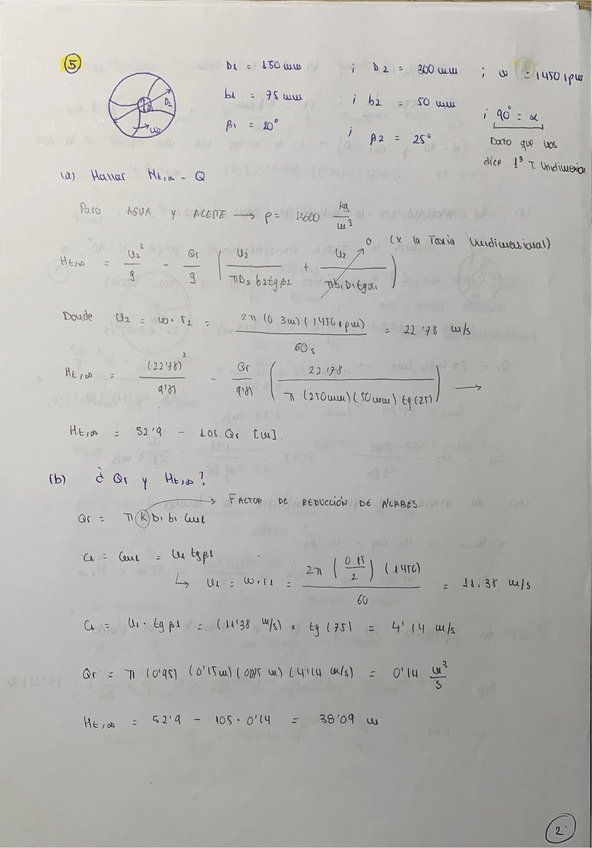 ⑤ D1 = 150 mm ; D2 = 300 mm ; ω = 1450 rpm
b1 = 75 mm ; b2 = 50 mm ; 90° = α
β1 = 20° ; β2 = 25° Dato que nos
dice 1ª T. Unidimension
(a) Hallar Ht,∞ - Q
Para AGUA y ACEITE → ρ = 1600 kg/m³
Ht,∞ = U2²/g Qr/g ( U2/(πD2 b2 tgβ2) + U2/(πb1 D1 tgα1) ) 0 (x la Teoría Unidimensional)
Donde U2 = ω · r2 = 2π(0'3m)(1450 rpm)/60s = 22'78 m/s
Ht,∞ = (22'78)²/9'81 - Qr/9'81 ( 22'78/(π (250mm)(50mm) tg(25)) ) →
Ht,∞ = 52'9 - 105 Qr [m].
(b) ¿ Qr y Ht,∞ ?
→ FACTOR DE REDUCCIÓN DE ALABES
Qr = π K D1 b1 C1m1
C1 = C1m1 = U1 tgβ1
↳ U1 = ω·r1 = 2π (0'15/2) (1450)/60 = 11.38 m/s
C1 = U1 · tgβ1 = (11'38 m/s) × tg(75) = 4'14 m/s
Qr = π (0'95) (0'15m) (0'075 m) (4'14 m/s) = 0'14 m³/s
Ht,∞ = 52'9 - 105 · 0'14 = 38'09 m
2